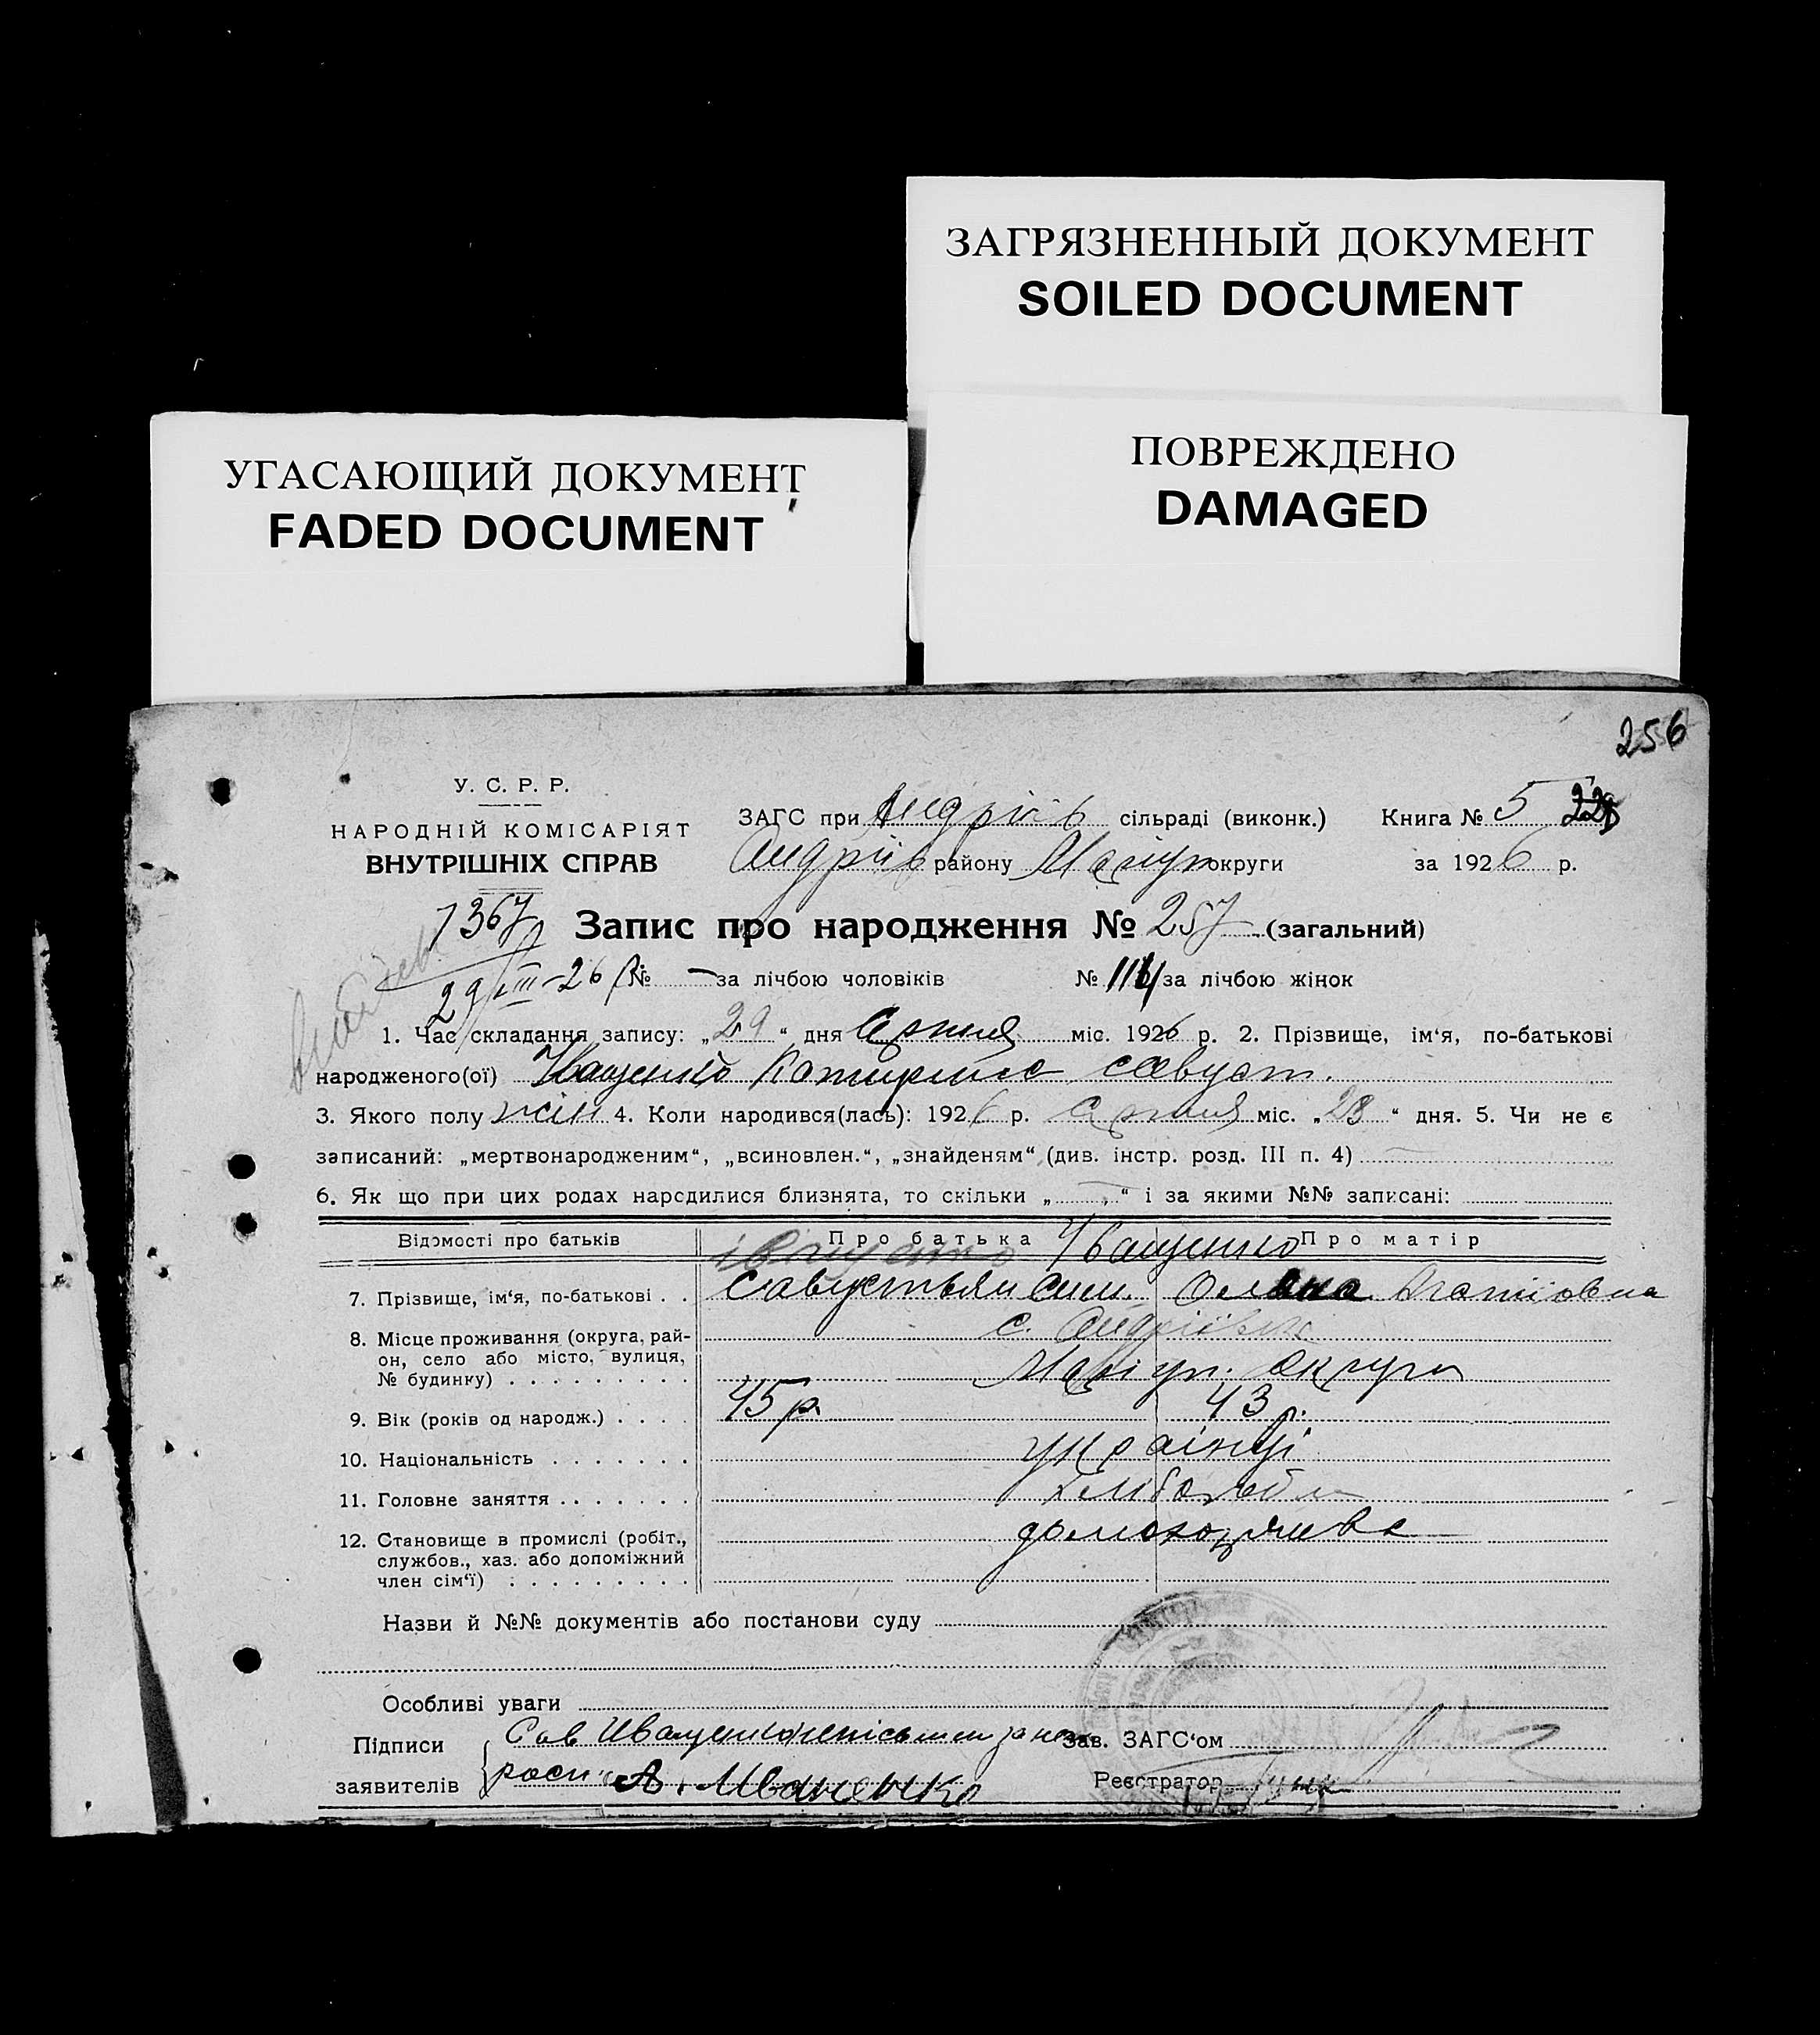 ЗАГРЯЗНЕННЫЙ ДОКУМЕНТ
SOILED DOCUMENT
УГАСАЮЩИЙ ДОКУМЕНТ
FADED DOCUMENT
ПОВРЕЖДЕНО
DAMAGED
256
У. С. Р. Р.
НАРОДНІЙ КОМІСАРІЯТ
ВНУТРІШНІХ СПРАВ
ЗАГС при Андріів сільраді (виконк.) Книга № 5
Андріів району Маріуп округи за 1926 р.
1367
Запис про народження № 257 (загальний)
29/VIII-26 р № — за лічбою чоловіків № за лічбою жінок
1. Час складання запису: „29“ дня Серпня міс. 1926 р. 2. Прізвище, ім‘я, по-батькові
народженого(ої) Иващенко Катирина савуст.
3. Якого полу жін 4. Коли народився(лась): 1926 р. Серпня міс. „28“ дня. 5. Чи не є
записаний: „мертвонародженим“, „всиновлен.“, „знайденям“ (див. інстр. розд. III п. 4)
6. Як що при цих родах народилися близнята, то скільки „ “ і за якими №№ записані:
Відомості про батьків Про батька Про матір
іващенко Иващенко
7. Прізвище, ім‘я, по-батькові . . Савустьян Сим. Олена
8. Місце проживання (округа, рай-
он, село або місто, вулиця,
№ будинку) . . . . . . . . .
с. Андріівка
Маріуп. округи
9. Вік (років од народж.) . . . . 45 р. 43 р.
10. Національність . . . . . . . украінці
11. Головне заняття . . . . . . хліборобы
12. Становище в промислі (робіт.,
службов., хаз. або допоміжний
член сім‘ї) . . . . . . . . .
домохозяива
Назви й №№ документів або постанови суду
Особливі уваги
Підписи Сав Иващенко
заявителів роси А. Иваненко
Зав. ЗАГС‘ом
Реєстратор